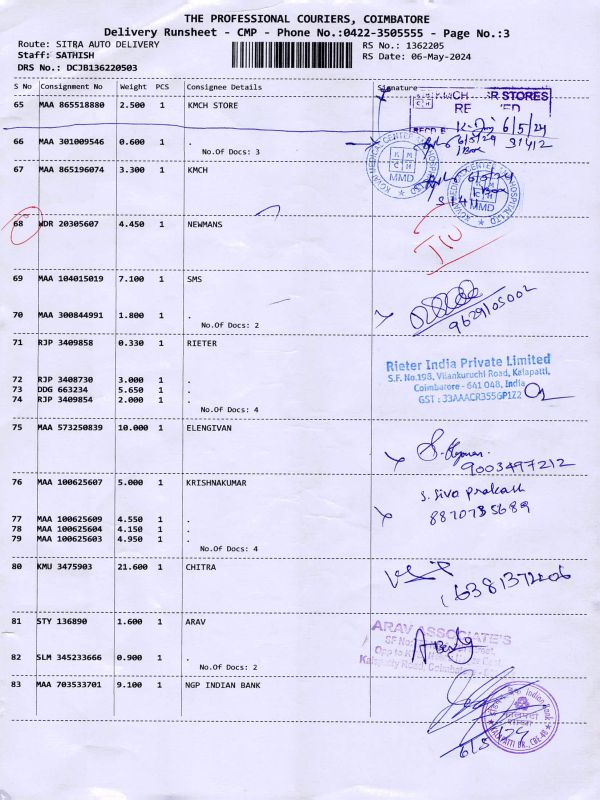 THE PROFESSIONAL COURIERS, COIMBATORE
Delivery Runsheet - CMP - Phone No.:0422-3505555 - Page No.:3
Route: SITRA AUTO DELIVERY
RS No.: 1362205
Staff: SATHISH
RS Date: 06-May-2024
DRS No.: DCJB136220503
S No Consignment No Weight PCS Consignee Details Signature
65 MAA 865518880 2.500 1 KMCH STORE
STORES
6/5/24
66 MAA 301009546 0.600 1 .
No.Of Docs: 3
6/5/24
67 MAA 865196074 3.300 1 KMCH
KMCH
MMD
KMCH
MMD
68 WDR 20305607 4.450 1 NEWMANS
69 MAA 104015019 7.100 1 SMS
70 MAA 300844991 1.800 1 .
No.Of Docs: 2
9629105002
71 RJP 3409858 0.330 1 RIETER
Rieter India Private Limited
S.F. No.198, Vilankuruchi Road, Kalapatti,
Coimbatore - 641 048, India
GST : 33AAACR355GP1Z2
72 RJP 3408730 3.000 1 .
73 DDG 663234 5.650 1 .
74 RJP 3409854 2.000 1 .
No.Of Docs: 4
75 MAA 573250839 10.000 1 ELENGIVAN
9003497212
76 MAA 100625607 5.000 1 KRISHNAKUMAR
S. Siva Prakash
8870735689
77 MAA 100625609 4.550 1 .
78 MAA 100625604 4.150 1 .
79 MAA 100625603 4.950 1 .
No.Of Docs: 4
80 KMU 3475903 21.600 1 CHITRA
81 STY 136890 1.600 1 ARAV
ARAV ASSOCIATE'S
82 SLM 345233666 0.900 1 .
No.Of Docs: 2
83 MAA 703533701 9.100 1 NGP INDIAN BANK
Indian Bank
6/5/24